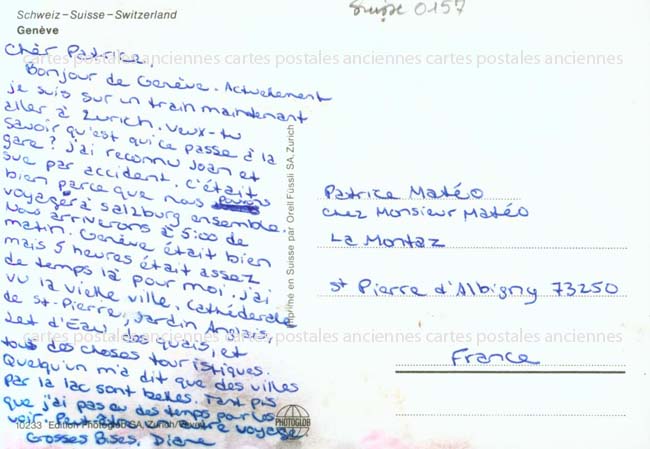 Schweiz – Suisse – Switzerland
Genève
Suisse 0157
cartes postales anciennes cartes postales anciennes cartes postales anciennes
Chèr Patrice,
Bonjour de Genève. Actuellement
je suis sur un train maintenant
aller à Zurich. Veux-tu
savoir qu'est qui ce passe à la
gare? J'ai reconnu Joan et
Sue par accident. C'était
bien parce que nous
voyager à Salzburg ensemble.
Nous arriverons à 5:00 de
matin. Genève était bien
mais 5 heures était assez
de temps là pour moi. J'ai
vu la vielle ville, Cathéderale
de St-Pierre, Jardin Anglais,
Jet d'Eau, des quais, et
tous des choses touristiques.
Quelqu'un m'a dit que des villes
par la lac sont belles. Tant pis
que j'ai pas eu des temps pour les
voir. Peut-être voyage
Grosses Bises, Diane
Imprimé en Suisse par Orell Füssli SA, Zurich
Patrice Matéo
chez Monsieur Matéo
La Montaz
St Pierre d'Albigny 73250
France
cartes postales anciennes cartes postales anciennes cartes postales anciennes
10233 Edition Photoglob SA, Zürich/Vevey
PHOTOGLOB